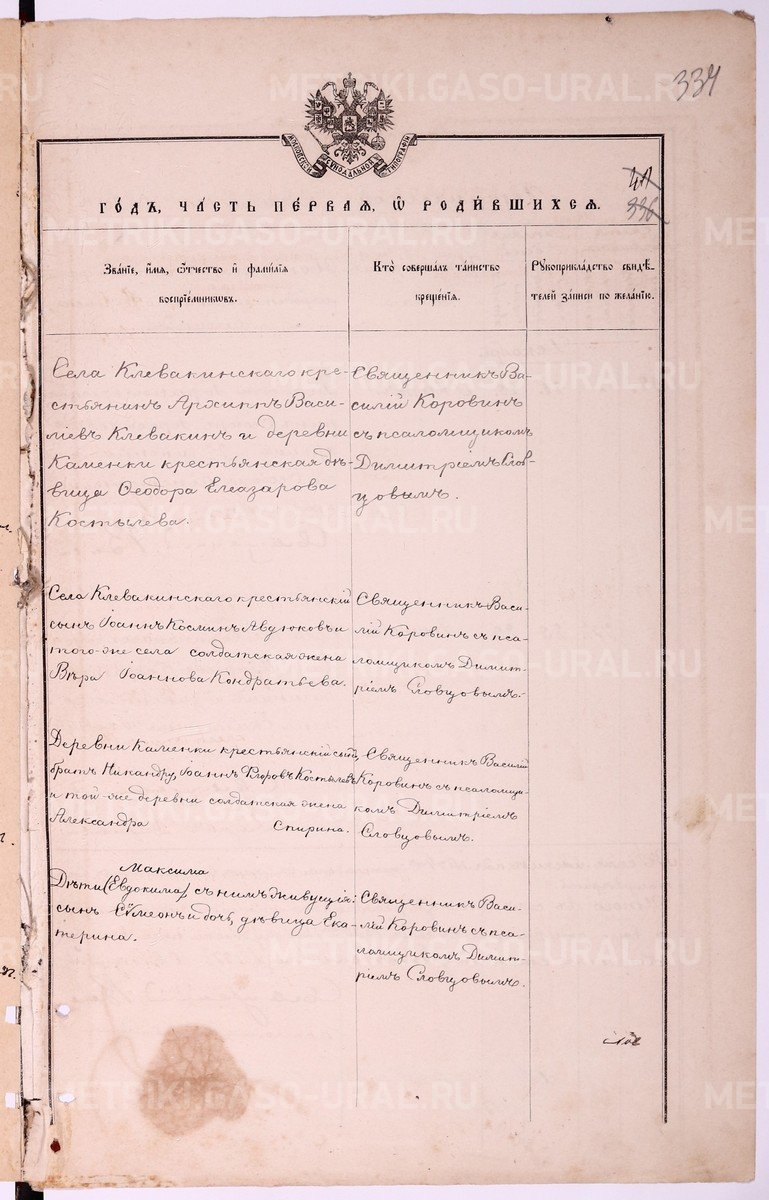 334
МОСКОВСКОЙ СѴНОДАЛЬНОЙ ТИПОГРАФІИ
41
336
ГО́ДЪ, ЧА́СТЬ ПЕ́РВАЯ, Ѽ РОДИ́ВШИХСЯ.
Зва́нїе, и҆́мя, ѻ҆́тчество и҆ фами́лїя
воспрїе́мникѡвъ.
Кто̀ совершалъ та́инство
креще́нїя.
Рꙋкоприкла́дство свидѣ́-
телей за́писи по жела́нїю.
Села Клевакинскаго кре-
стьянинъ Архиппъ Васи-
ліевъ Клевакинъ и деревни
Каменки крестьянская дѣ-
вица Ѳеодора Елеазарова
Костылева.
Священникъ Ва-
силій Коровинъ
съ псаломщикомъ
Димитріемъ Слов-
цовымъ.
Села Клевакинскаго крестьянскій
сынъ Іоаннъ Косминъ Авдюковъ и
того-же села солдатская жена
Вѣра Іоаннова Кондратьева.
Священникъ Васи-
лій Коровинъ съ пса-
ломщикомъ Димит-
ріемъ Словцовымъ.
Деревни Каменки крестьянскій сынъ,
братъ Никандру, Іоаннъ Флоровъ Костылевъ
и той-же деревни солдатская жена
Александра Спирина.
Священникъ Василій
Коровинъ съ псаломщи-
комъ Димитріемъ
Словцовымъ.
Максима
Дѣти (Евдокима) съ нимъ живущія:
сынъ Сѵмеонъ и дочь, дѣвица Ека-
терина.
Священникъ Васи-
лій Коровинъ съ пса-
ломщикомъ Димит-
ріемъ Словцовымъ.
METRIKI.GASO-URAL.RU